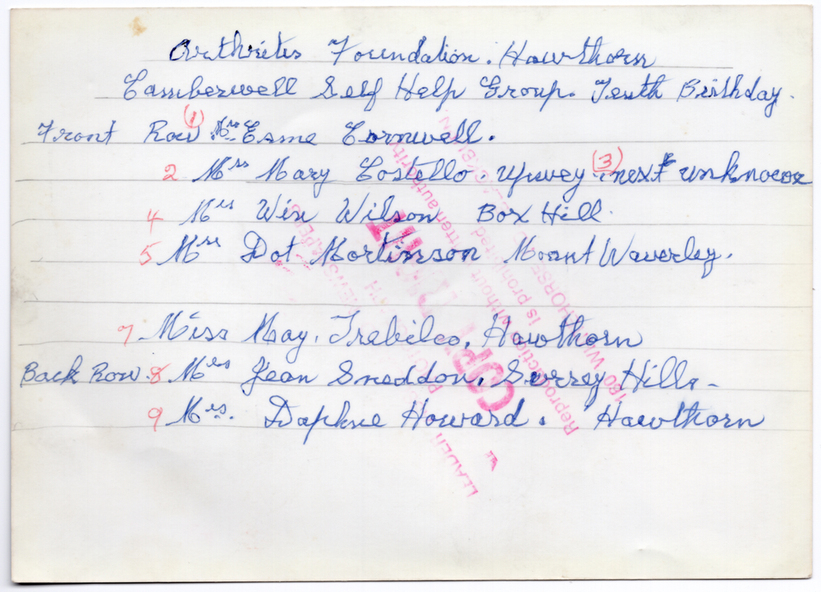 Arthrites Foundation. Hawthorn
Camberwell Self Help Group. Tenth Birthday.
Front Row (1) Mrs Esme Cornwell.
2 Mrs Mary Costello. Upwey. (3) next unknown
4 Mrs Win Wilson Box Hill.
5 Mrs Dot Mortimson Mount Waverley.
7 Miss May. Trebilco. Hawthorn
Back Row. 8 Mrs Jean Sneddon. Surrey Hills-
9 Mrs. Daphne Howard. Hawthorn
COPYRIGHT
LEADER
NEWSPAPERS
Reproduction is prohibited without written authority